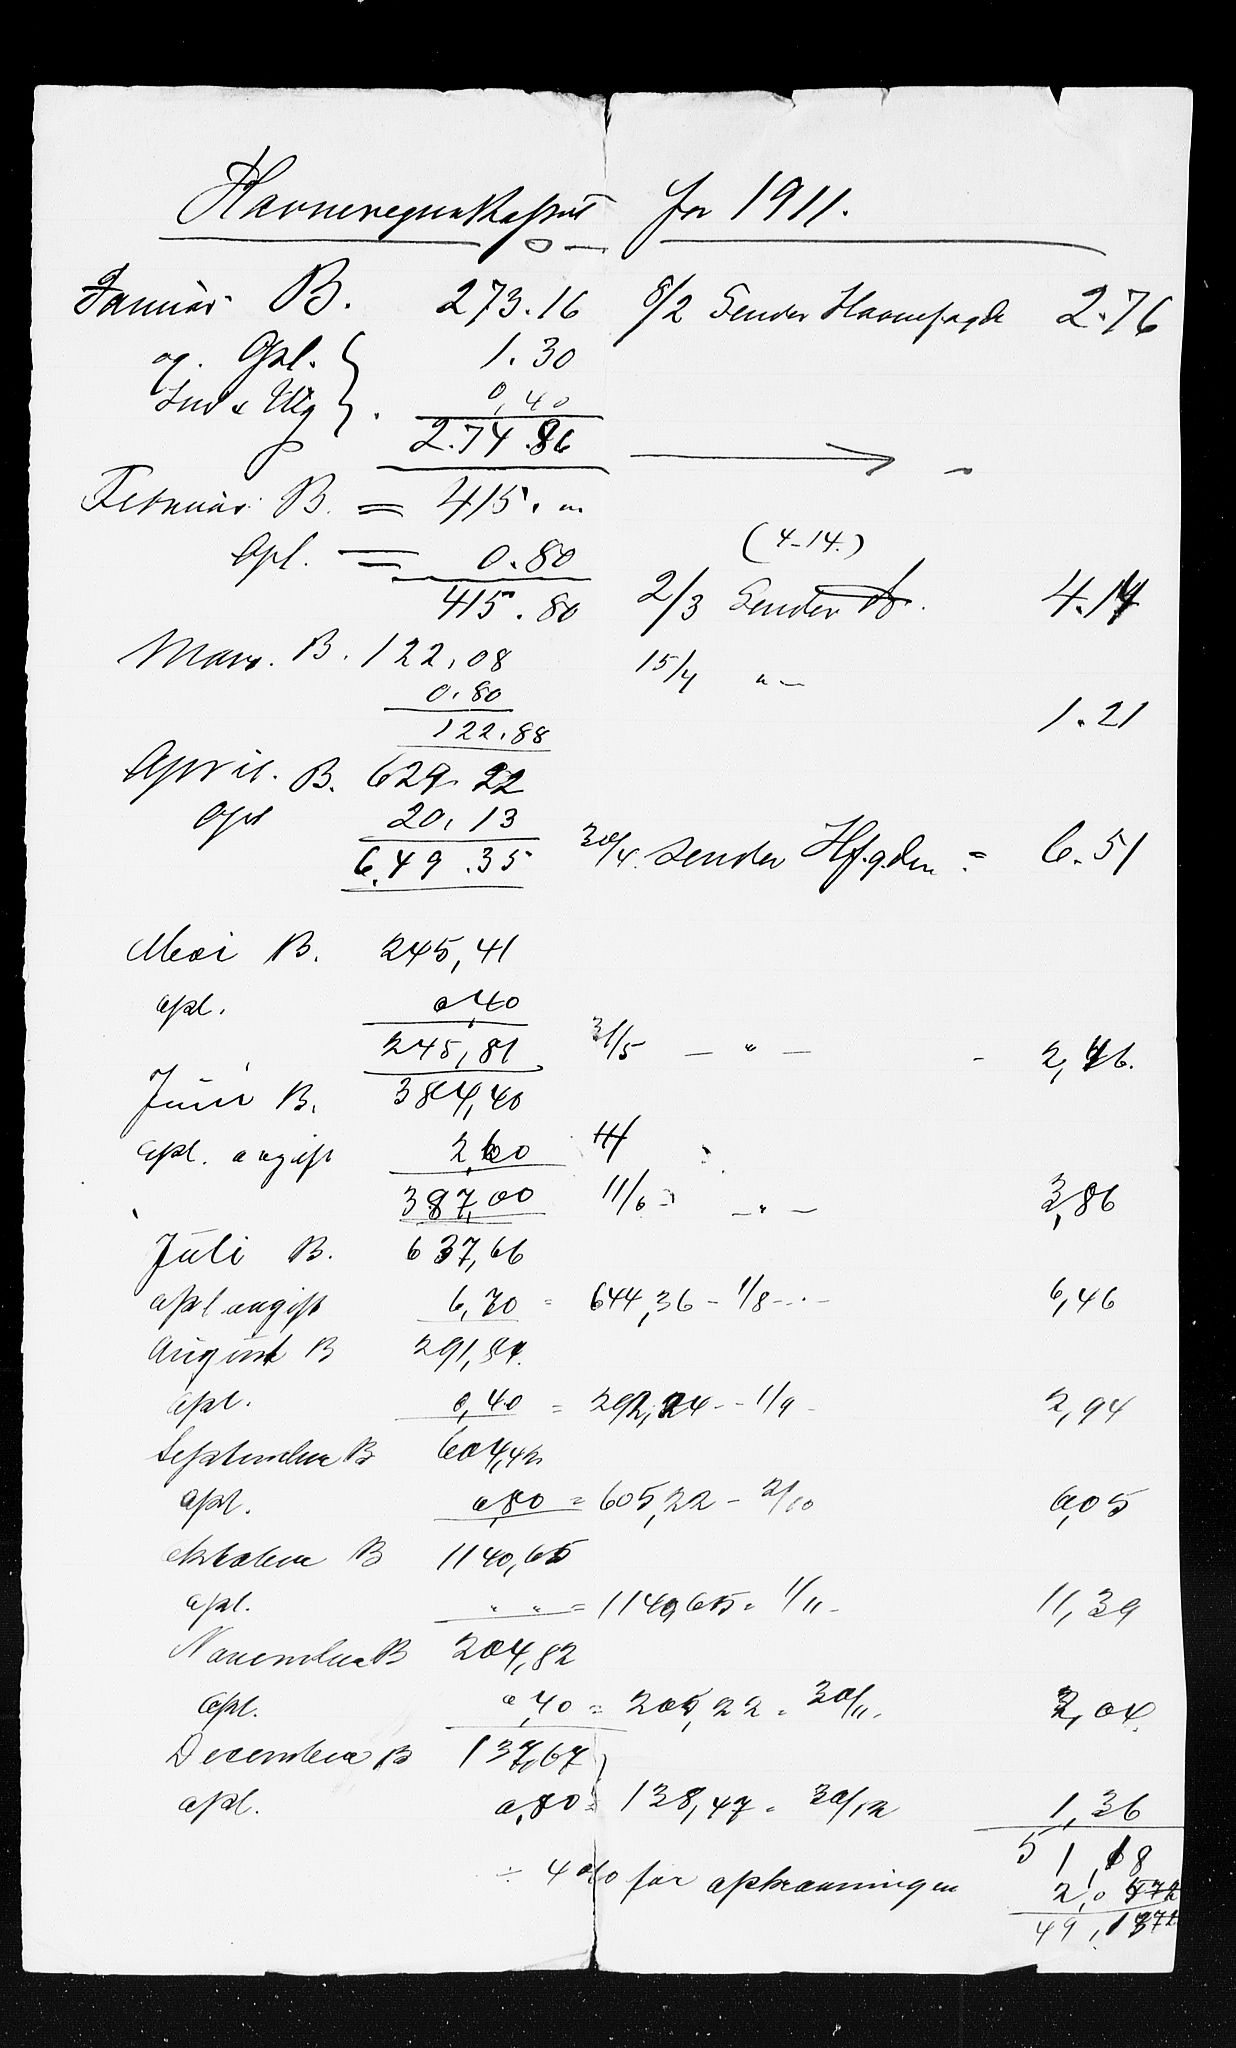 Havneregnskabet for 1911.
Januar B. 273.16 8/2 Sender Havnefogde 2.76
og. Opl. 1.30
Ind & Udg. 0,40
2.74.86
Februar B. = 415.
Opl. = 0.80 (4-14.)
415.80 2/3 Sender do. 4.14
Mars. B. 122,08 15/4 " —
0.80
122.88 1.21
April. B. 629.22
Opl 20,13
6.49.35 30/4. sender Hf.gden = 6.51
Mai B. 245,41
opl. 0,40
245,81 31/5 — " — - 2,46.
Juni B. 384,40
opl. avgift 2,60
387,00 11/6 — " — 3,86
Juli B. 637,66
opl avgift 6,70 = 644,36 - 1/8 - - - 6,46
August B 291,84.
opl. 0,40 = 292,24 - - 1/9 - 2,94
September B 604,42
opl. 0,80 = 605,22 - 2/10 6,05
oktober B 1140,65
opl. " " = 1140,65 = 1/11 - 11,39
November B 204,82
Opl. 0,40 = 205,22 = 30/11. 2,04.
December B 137,67
opl. 0,80 = 138,47 = 30/12 1,36
51,18
÷ 4 o/o for opkrævningen 2,0
49,1